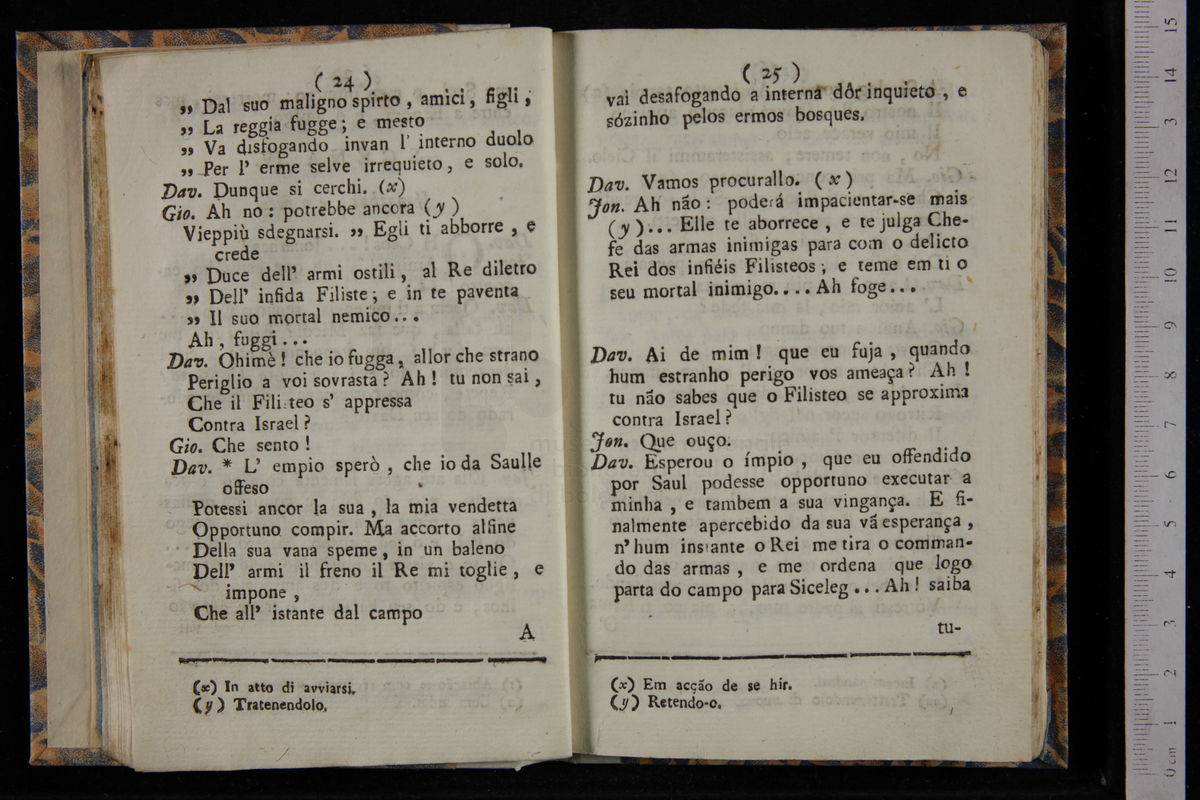 ( 24 )
„ Dal suo maligno spirto , amici, figli ,
„ La reggia fugge ; e mesto
„ Va disfogando invan l' interno duolo
„ Per l' erme selve irrequieto, e solo.
Dav. Dunque si cerchi. (x)
Gio. Ah no : potrebbe ancora (y)
Vieppiù sdegnarsi. „ Egli ti abborre , e
crede
„ Duce dell' armi ostili, al Re diletro
„ Dell' infida Filiste ; e in te paventa
„ Il suo mortal nemico...
Ah , fuggi...
Dav. Ohimè ! che io fugga, allor che strano
Periglio a voi sovrasta ? Ah ! tu non sai ,
Che il Filisteo s' appressa
Contra Israel ?
Gio. Che sento !
Dav. * L' empio sperò , che io da Saulle
offeso
Potessi ancor la sua , la mia vendetta
Opportuno compir. Ma accorto alfine
Della sua vana speme, in un baleno
Dell' armi il freno il Re mi toglie , e
impone ,
Che all' istante dal campo
A
(x) In atto di avviarsi.
(y) Tratenendolo,
( 25 )
vai desafogando a interna dôr inquieto , e
sózinho pelos ermos bosques.
Dav. Vamos procurallo. (x)
Jon. Ah não : poderá impacientar-se mais
(y)... Elle te aborrece , e te julga Che-
fe das armas inimigas para com o delicto
Rei dos infiéis Filisteos ; e teme em ti o
seu mortal inimigo.... Ah foge...
Dav. Ai de mim ! que eu fuja , quando
hum estranho perigo vos ameaça ? Ah !
tu não sabes que o Filisteo se approxima
contra Israel ?
Jon. Que ouço.
Dav. Esperou o ímpio , que eu offendido
por Saul podesse opportuno executar a
minha , e tambem a sua vingança. E fi-
nalmente apercebido da sua vã esperança ,
n'hum instante o Rei me tira o comman-
do das armas , e me ordena que logo
parta do campo para Siceleg... Ah ! saiba
tu-
(x) Em acção de se hir.
(y) Retendo-o.
0 cm 1 2 3 4 5 6 7 8 9 10 11 12 13 14 15